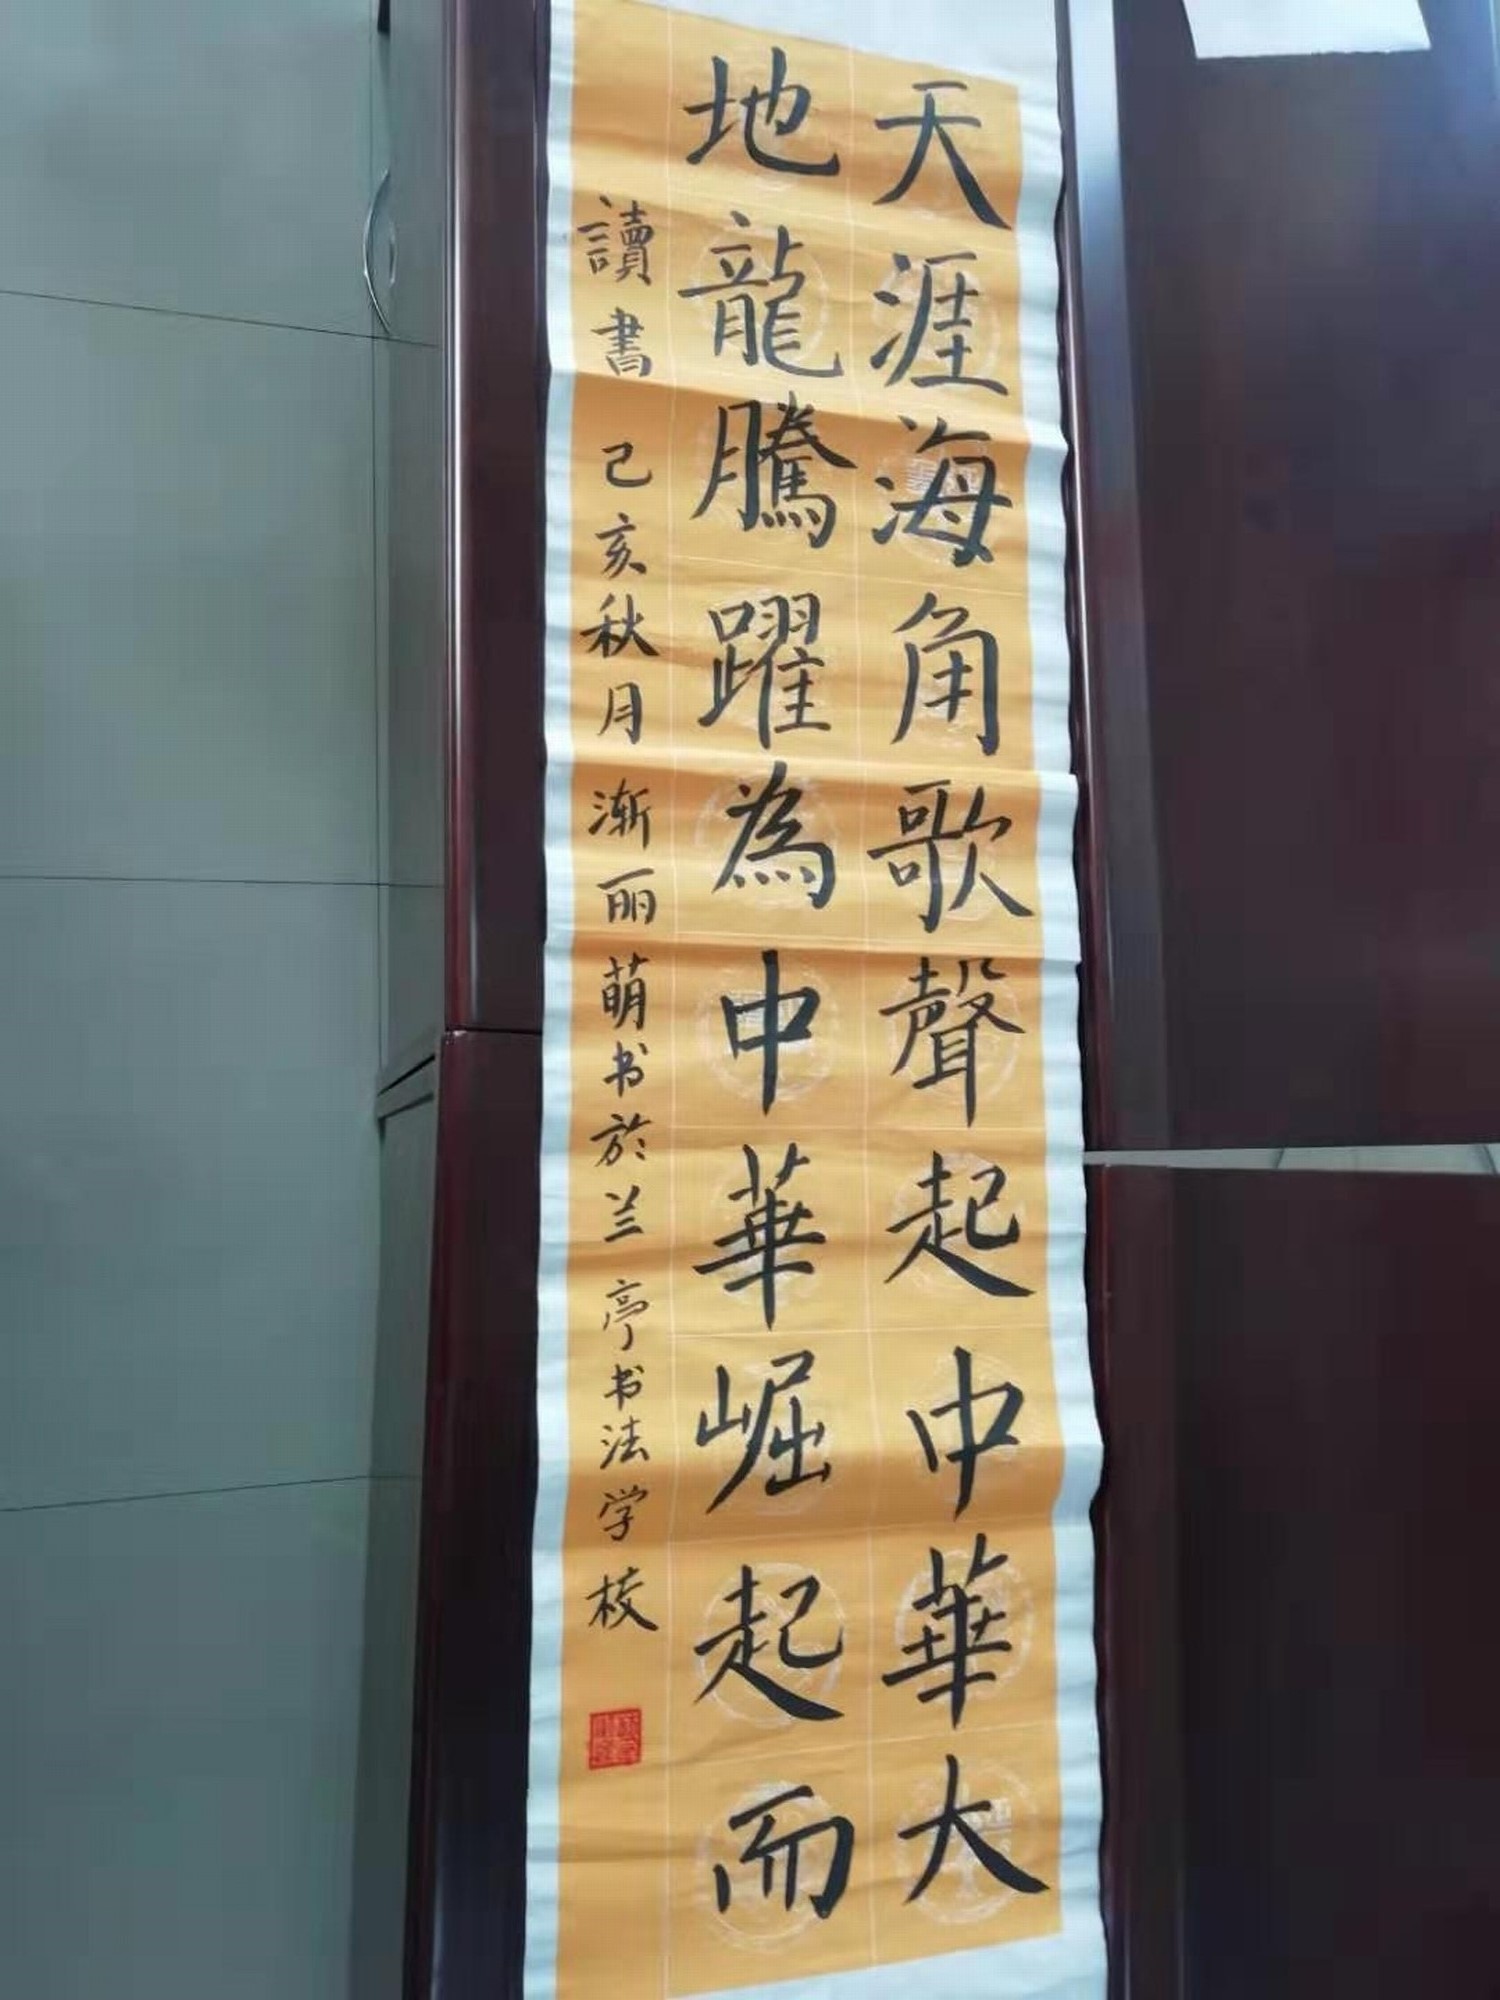 天涯海角歌聲起中華大
地龍騰躍為中華崛起而
讀書 己亥秋月 渐丽萌书於兰亭书法学校